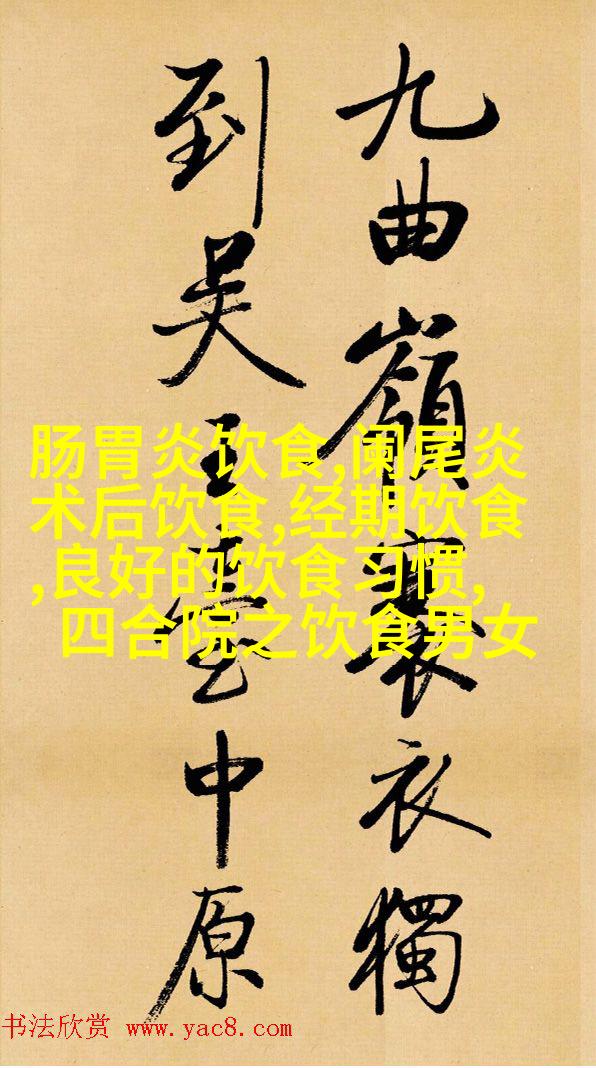 九曲嶺褰衣獨
到吴王臺中原
肠胃炎饮食,阑尾炎
术后饮食,经期饮食
,良好的饮食习惯,
四合院之饮食男女
书法欣赏 www.yac8.com